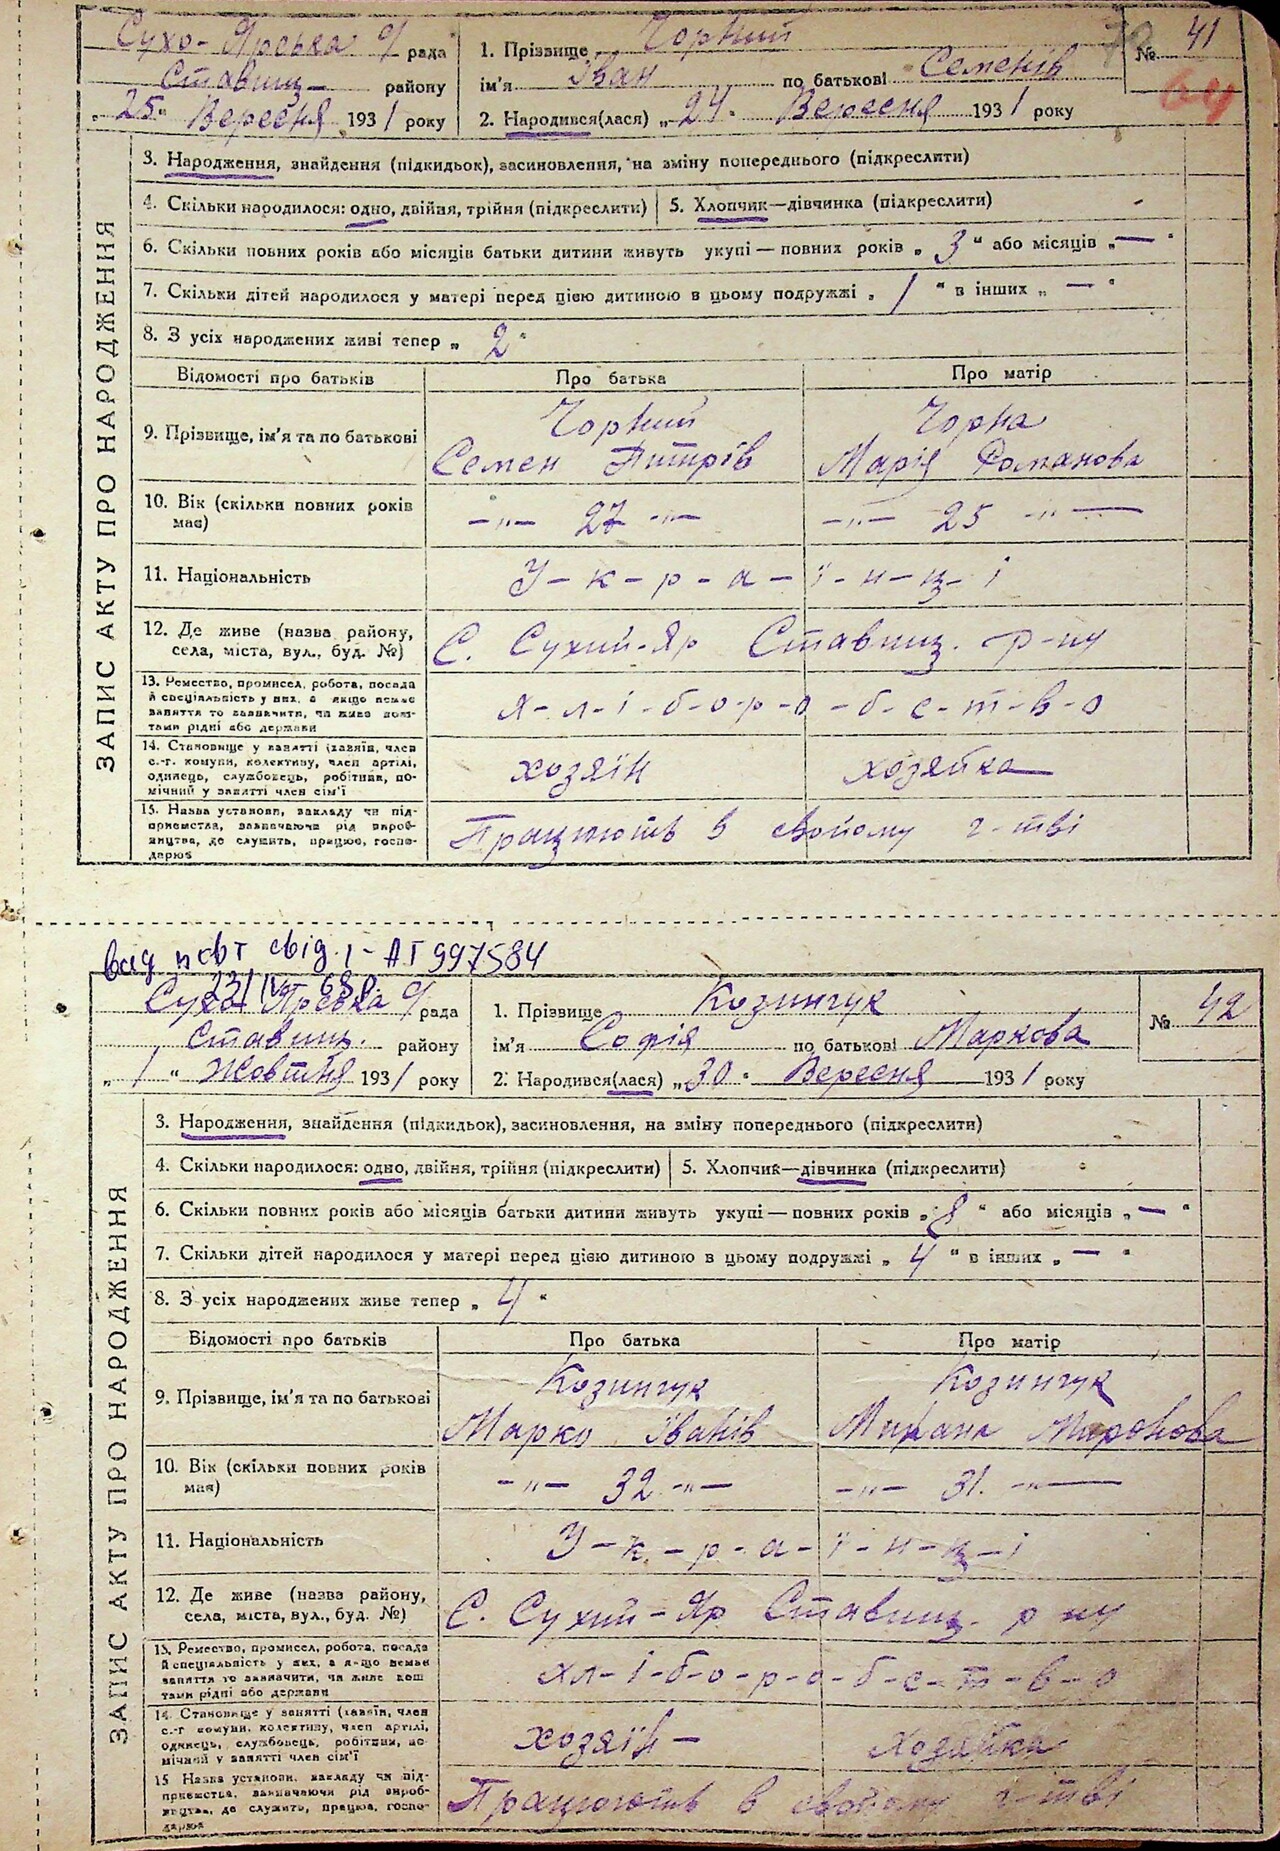 Сухо-Ярська с/рада
Ставищ- району
"25" Вересня 1931 року
1. Прізвище Чорний
ім'я Іван по батькові Семенів
2. Народився(лася) „24" Вересня 1931 року
№ 41
72
64
ЗАПИС АКТУ ПРО НАРОДЖЕННЯ
3. Народження, знайдення (підкидьок), засиновлення, на зміну попереднього (підкреслити)
4. Скільки народилося: одно, двійня, трійня (підкреслити) 5. Хлопчик—дівчинка (підкреслити)
6. Скільки повних років або місяців батьки дитини живуть укупі — повних років „3" або місяців „—"
7. Скільки дітей народилося у матері перед цією дитиною в цьому подружжі „1" в інших „—"
8. З усіх народжених живі тепер „2"
Відомості про батьків Про батька Про матір
9. Прізвище, ім'я та по батькові
Чорний Чорна
Семен Питрів Марія Романова
10. Вік (скільки повних років має) —"— 27 —"— —"— 25 —"—
11. Національність У-к-р-а-ї-н-ц-і
12. Де живе (назва району, села, міста, вул., буд. №) С. Сухий-Яр Ставищ. р-ну
13. Ремество, промисел, робота, посада
й спеціальність у них, а якщо немає
заняття то зазначити, чи живе кош-
тами рідні або держави
х-л-і-б-о-р-о-б-с-т-в-о
14. Становище у занятті (хазяїн, член
с.-г. комуни, колективу, член артілі,
одинець, службовець, робітник, по-
мічний у занятті член сім'ї
хозяїн хозяйка
15. Назва установи, закладу чи під-
приємства, зазначаючи рід вироб-
ництва, де служить, працює, госпо-
дарює
Працюють в свойому г-тві
вид повт свід. І-АТ 997584
23/IV- 68р.
Сухо-Ярська с/рада
Ставищ. району
„1" Жовтня 1931 року
1. Прізвище Козинчук
ім'я Софія по батькові Маркова
2. Народився(лася) „30" Вересня 1931 року
№ 42
ЗАПИС АКТУ ПРО НАРОДЖЕННЯ
3. Народження, знайдення (підкидьок), засиновлення, на зміну попереднього (підкреслити)
4. Скільки народилося: одно, двійня, трійня (підкреслити) 5. Хлопчик—дівчинка (підкреслити)
6. Скільки повних років або місяців батьки дитини живуть укупі — повних років „8" або місяців „—"
7. Скільки дітей народилося у матері перед цією дитиною в цьому подружжі „4" в інших „—"
8. З усіх народжених живе тепер „4"
Відомості про батьків Про батька Про матір
9. Прізвище, ім'я та по батькові
Козинчук Козинчук
Марко Іванів Миронова
10. Вік (скільки повних років має) —"— 32 —"— —"— 31. —"—
11. Національність У-к-р-а-ї-н-ц-і
12. Де живе (назва району, села, міста, вул., буд. №) С. Сухий-Яр Ставищ. р ну
13. Ремество, промисел, робота, посада
й спеціальність у них, а якщо немає
заняття то зазначити, чи живе кош
тами рідні або держави
хл-і-б-о-р-о-б-с-т-в-о
14. Становище у занятті (хазяїн, член
с.-г комуни, колективу, член артілі,
одинець, службовець, робітник, по-
мічний у занятті член сім'ї
хозяїн— Хозяйка
15 Назва установи, закладу чи під-
приємства, зазначаючи рід вироб-
ництва, де служить, працює, госпо-
дарює
Працюють в свойому г-тві